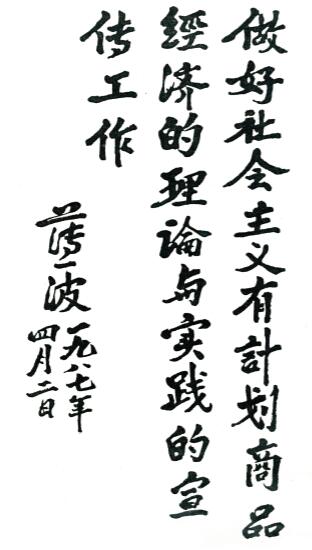 做好社会主义有計划商品
經济的理論与实践的宣
传工作
薄一波一九八七年
四月二日